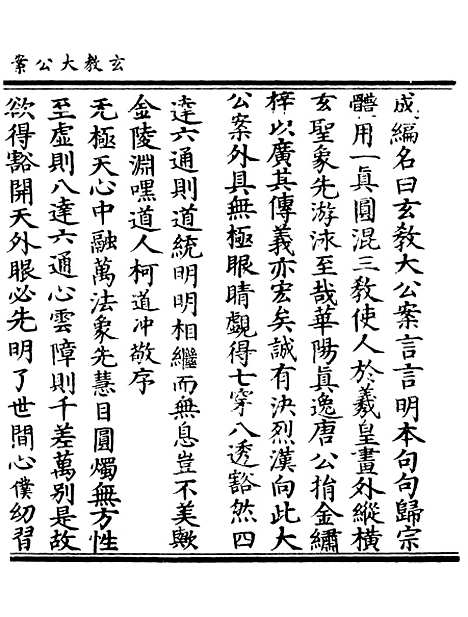 玄教大公案
成編名曰玄教大公案言言明本句句歸宗
體用一真圓混三教使人於羲皇畫外縱橫
玄聖象先游泳至哉華陽真逸唐公捐金繡
梓以廣其傳義亦宏矣誠有決烈漢向此大
公案外具無極眼睛覷得七穿八透豁然四
達六通則道統明明相繼而無息豈不美歟
金陵淵嘿道人柯道冲敬序
无極天心中融萬法象先慧目圓燭無方性
至虛則八達六通心雲障則千差萬別是故
欲得豁開天外眼必先明了世間心僕幼習